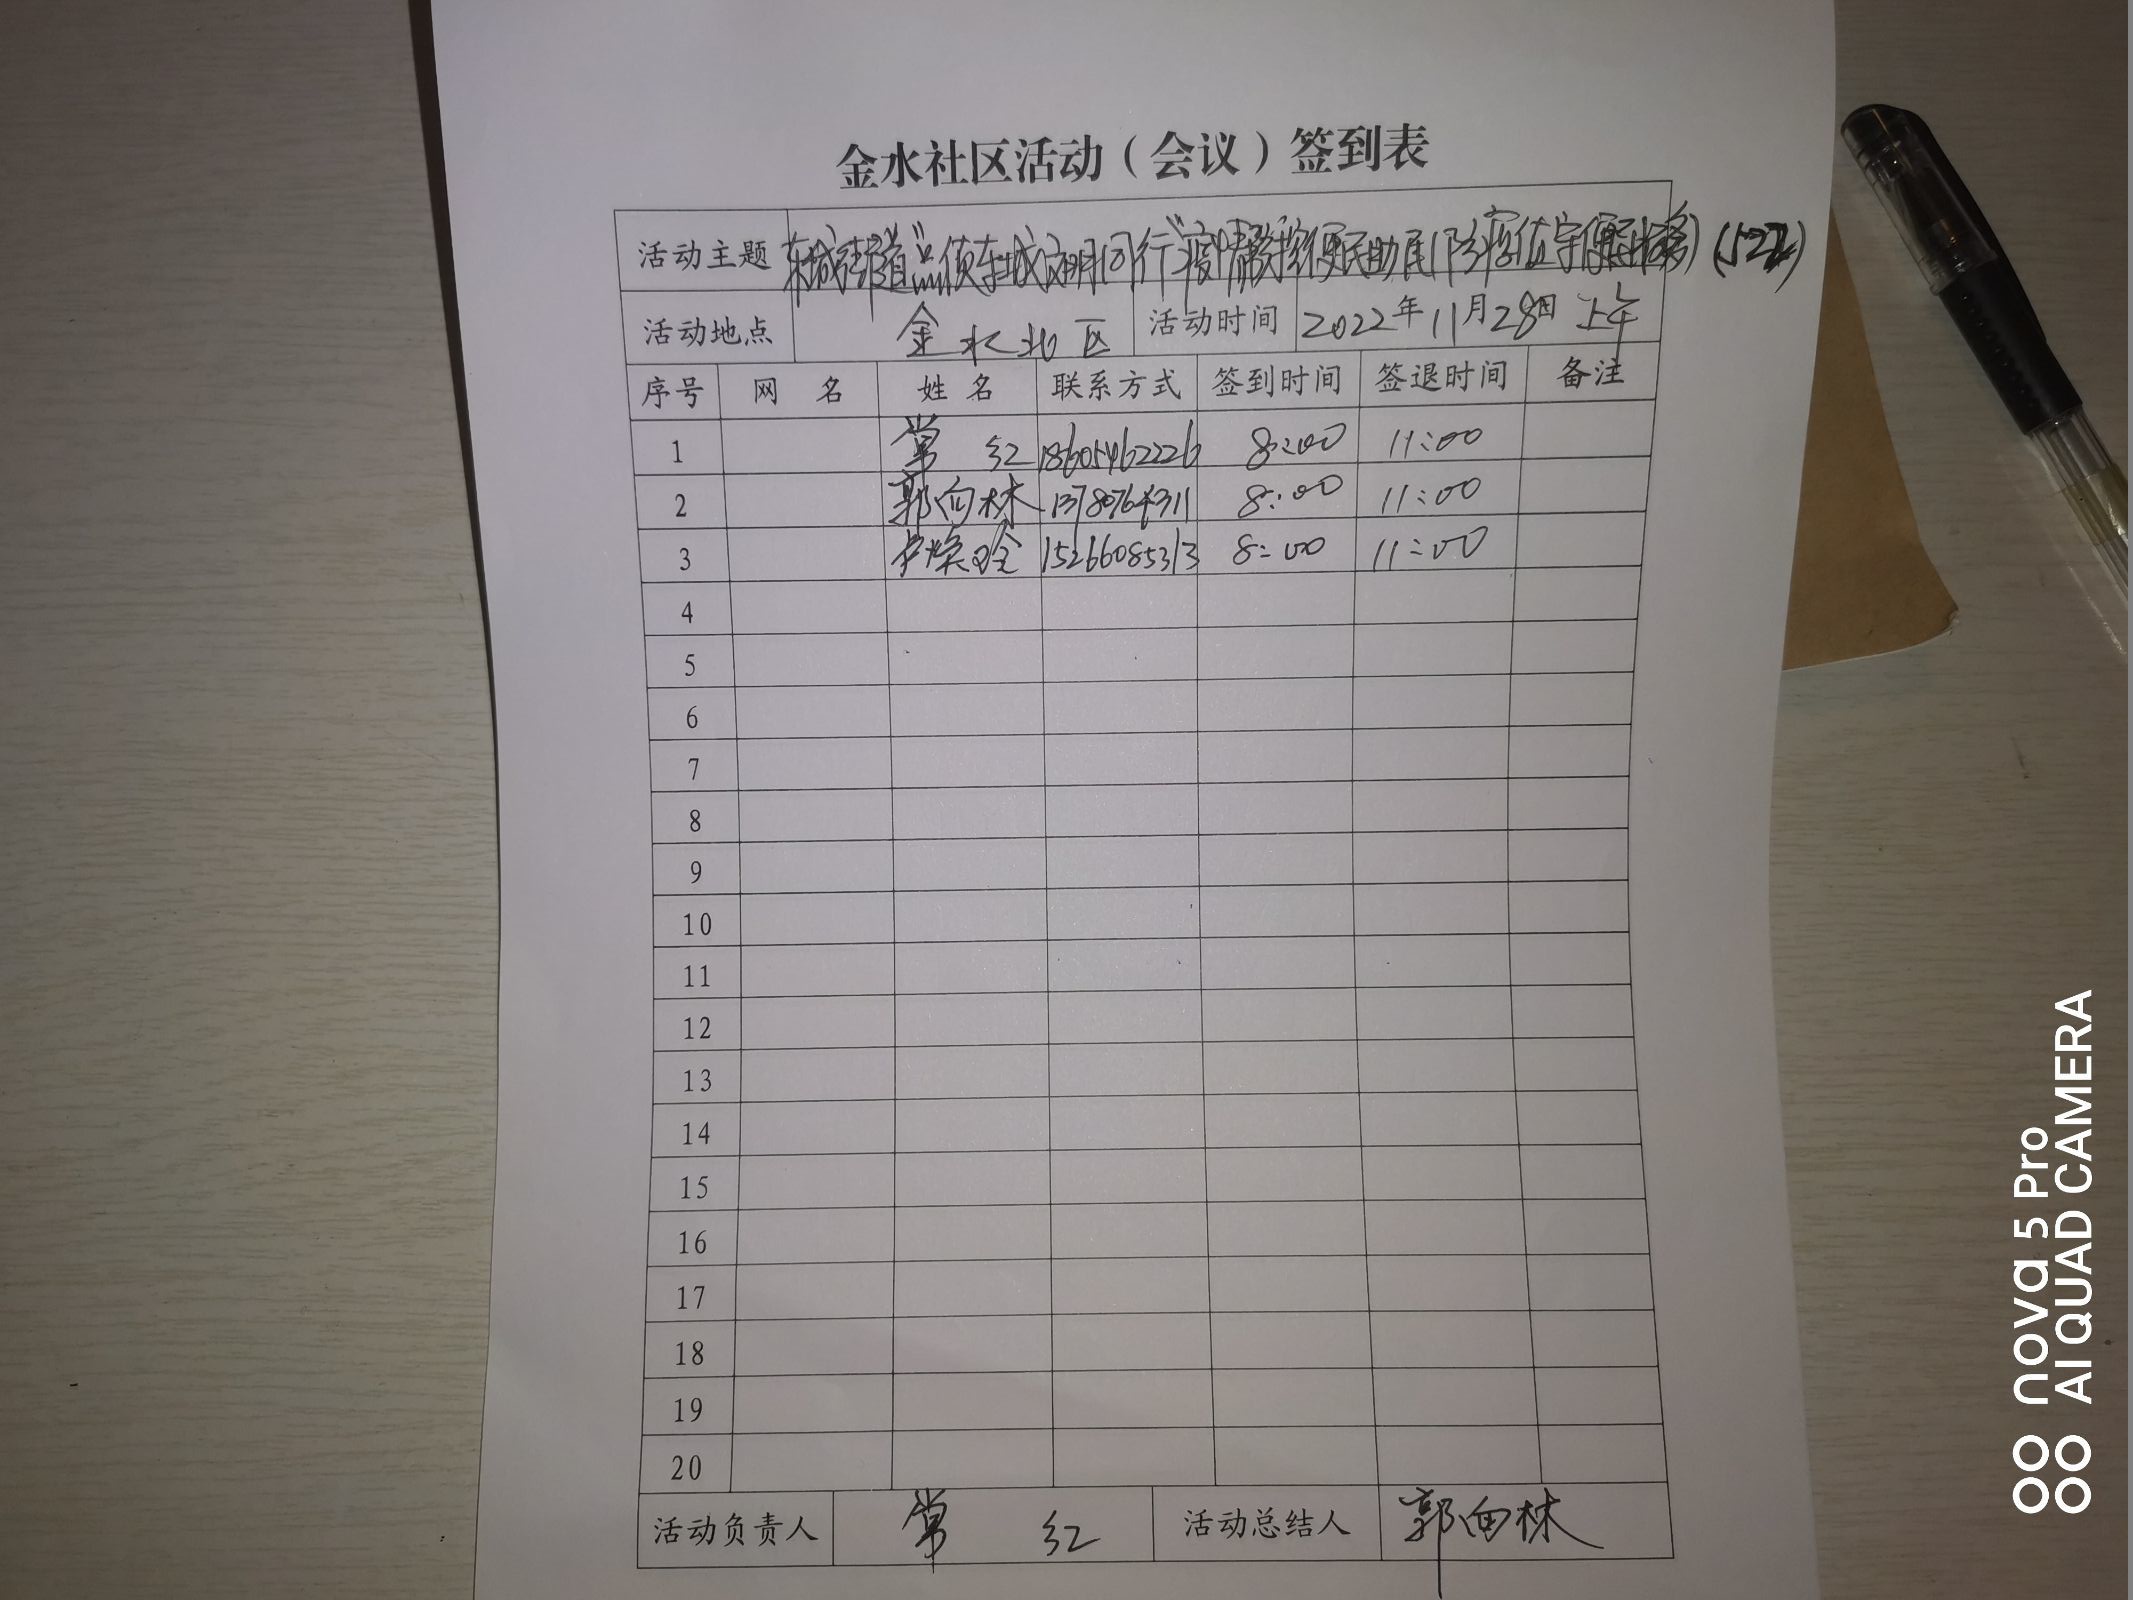 金水社区活动（会议）签到表
活动主题 东城街道"点侦东城文明同行"疫情防控便民助民(防疫值守便民服务)(522)
活动地点 金水北区 活动时间 2022年11月28日 上午
序号 网 名 姓 名 联系方式 签到时间 签退时间 备注
1 常 红 18605462226 8:00 11:00
2 郭向林 13780764311 8:00 11:00
3 15266085313 8:00 11:00
4
5
6
7
8
9
10
11
12
13
14
15
16
17
18
19
20
活动负责人 常 红 活动总结人 郭向林
nova 5 Pro
AI QUAD CAMERA